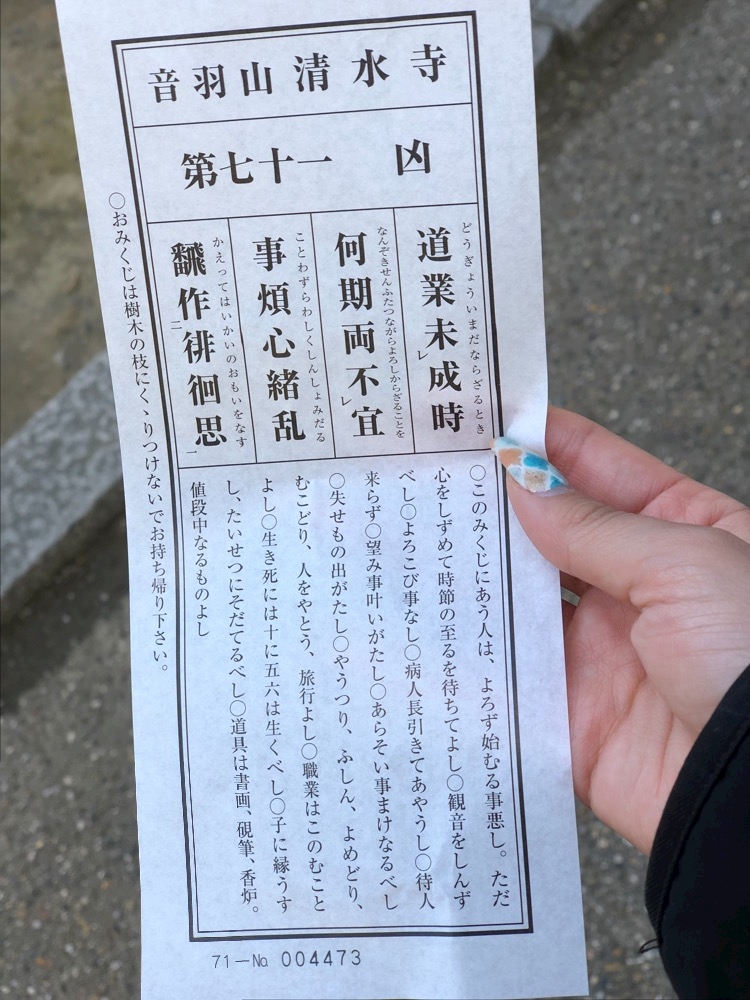 音羽山清水寺
第七十一　凶
どうぎょういまだならざるとき
道業未レ成時
なんぞきせんふたつながらよろしからざることを
何期両不レ宜
ことわずらわしくしんしょみだる
事煩心緒乱
かえってはいかいのおもいをなす
飜作二徘徊思一
〇このみくじにあう人は、よろず始むる事悪し。ただ
心をしずめて時節の至るを待ちてよし〇観音をしんず
べし〇よろこび事なし〇病人長引きてあやうし〇待人
来らず〇望み事叶いがたし〇あらそい事まけなるべし
〇失せもの出がたし〇やうつり、ふしん、よめどり、
むこどり、人をやとう、旅行よし〇職業はこのむこと
よし〇生き死には十に五六は生くべし〇子に縁うす
し、たいせつにそだてるべし〇道具は書画、硯筆、香炉。
値段中なるものよし
〇おみくじは樹木の枝にくゝりつけないでお持ち帰り下さい。
71－№ 004473